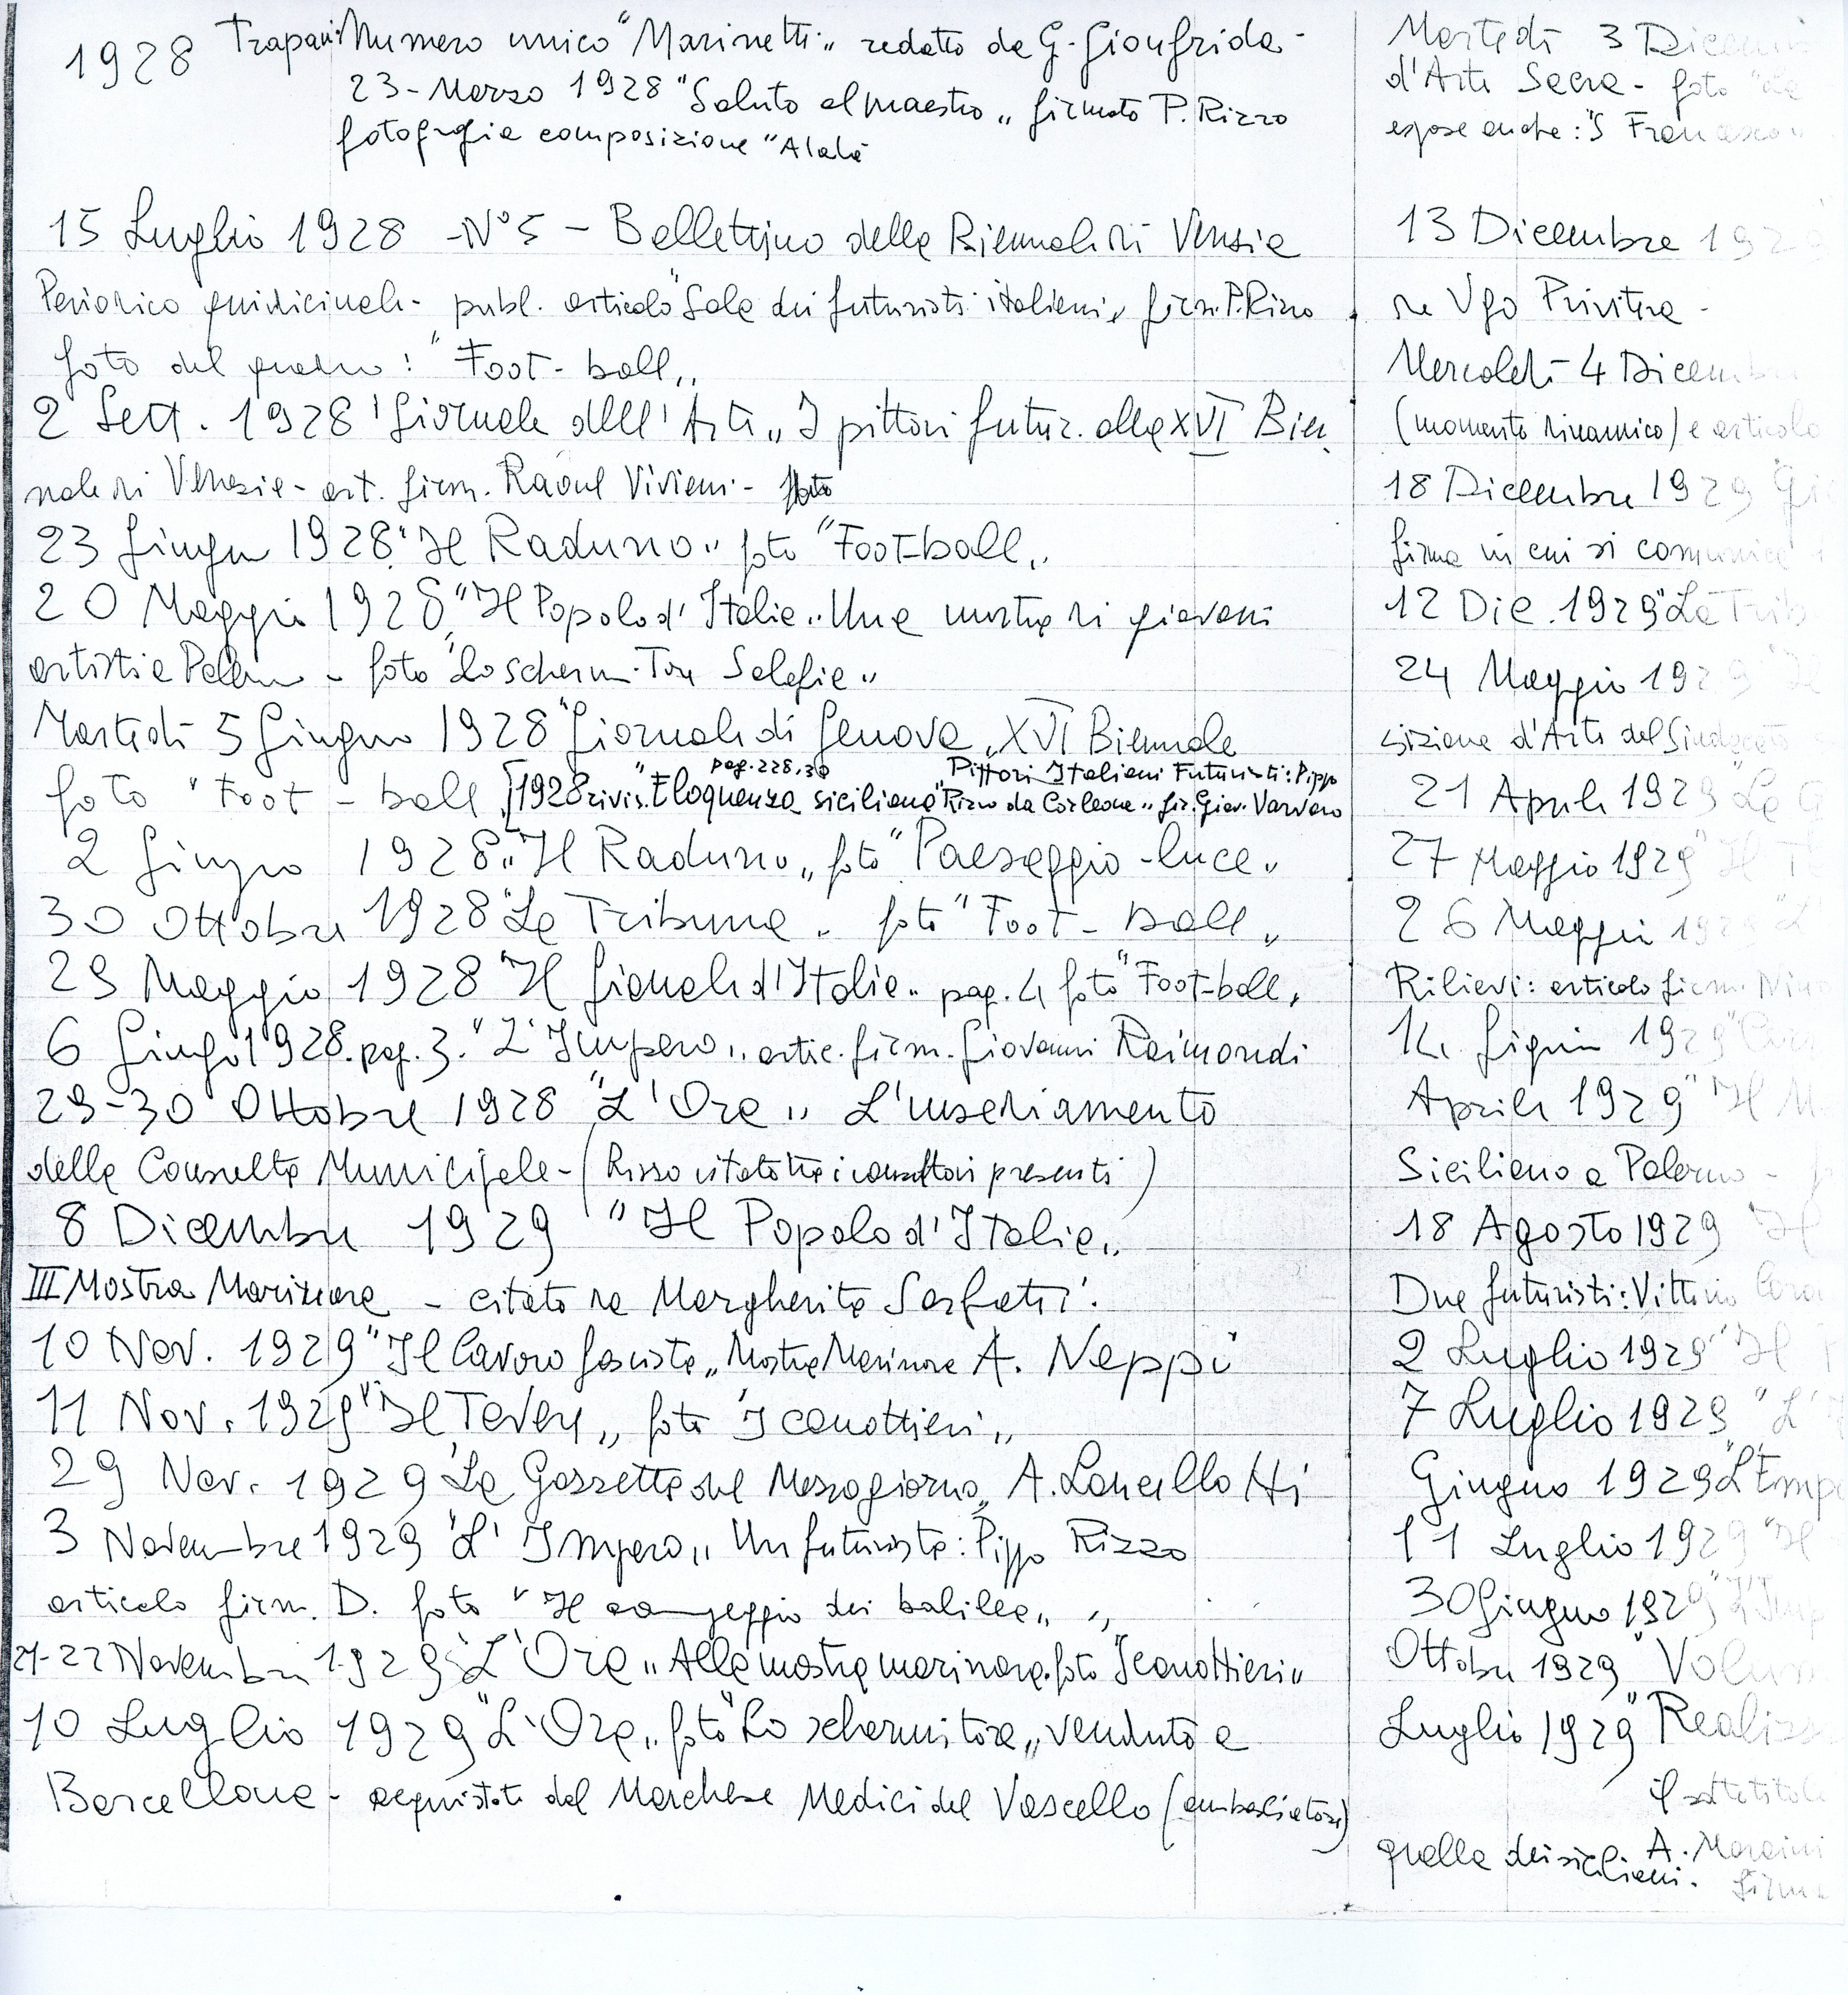 1928 Trapani: Numero unico "Marinetti" redatto da G. Gionfrida -
23 - Marzo 1928 "Saluto al maestro" firmato P. Rizzo
fotografia composizione "Alalà
15 Luglio 1928 - N° 5 - Bollettino della Biennale di Venezia
Periodico quindicinale - pubbl. articolo "Sala dei futuristi italiani" firm. P. Rizzo
foto del quadro: "Foot-ball"
2 Sett. 1928 "Giornale dell'Arte" I pittori futur. alla XVI Bien
nale di Venezia - art. firm. Raoul Viviani - foto
23 Giugn 1928 "Il Raduno" foto "Foot-ball"
20 Maggio 1928 "Il Popolo d'Italia" Una mostra di giovani
artisti a Palermo - foto "Lo scherm. Tore Salafia"
Martedì 5 Giugno 1928 "Giornale di Genova" XVI Biennale
foto "Foot-ball [1928 rivis. "Eloquenza siciliana" pag. 228, 30 Pittori Italiani Futuristi: Pippo
Rizzo da Corleone" fir. Giov. Varvaro
2 Giugno 1928 "Il Raduno" foto "Paesaggio-luce"
30 Ottobre 1928 "La Tribuna" foto "Foot-ball"
29 Maggio 1928 "Il Giornale d'Italia" pag. 4 foto "Foot-ball"
6 Giugno 1928. pag. 3. "L'Impero" artic. firm. Giovanni Raimondi
29-30 Ottobre 1928 "L'Ora" L'insediamento
della Consulta Municipale - (Rizzo citato tra i consultori presenti)
8 Dicembre 1929 "Il Popolo d'Italia"
III Mostra Marinara - citato da Margherita Sarfatti.
10 Nov. 1929 "Il Lavoro fascista" Mostra Marinara A. Neppi
11 Nov. 1929 "Il Tevere" foto "I canottieri"
29 Nov. 1929 "La Gazzetta del Mezzogiorno" A. Lancellotti
3 Novembre 1929 "L'Impero" Un futurista: Pippo Rizzo
articolo firm. D. foto "Il campeggio dei balilla"
21-22 Novembre 1929 "L'Ora" Alla mostra marinara. foto "I canottieri"
10 Luglio 1929 "L'Ora" foto "Lo schermitore" venduto a
Barcellona - acquistato dal Marchese Medici del Vascello (ambasciatore)
Martedì 3 Dicem
d'Arte Sacra - foto "La
espose anche: "S Francesco
13 Dicembre 1929
da Ugo Privitera -
Mercoledì 4 Dicemb
(momento dinamico) e articolo
18 Dicembre 1929 Gi
firma in cui si comunica
12 Dic. 1929 "La Trib
24 Maggio 1929 "Il
sizione d'Arte del Sindacato
21 Aprile 1929 "Le G
27 Maggio 1929 "Il T
26 Maggio 1929 "L'
Rilievi: articolo firm. Nino
14 Giugn 1929
Aprile 1929 "Il M
Siciliano a Palermo -
18 Agosto 1929 "Il
Due futuristi: Vittorio Coro
2 Luglio 1929 "Il
7 Luglio 1929 "L'
Giugno 1929 "L'Imp
11 Luglio 1929 "Il
30 Giugno 1929 "L'Imp
Ottobre 1929 "Volun
Luglio 1929 "Realizz
il sottotitolo
quella dei siciliani. A. Maraini
firma